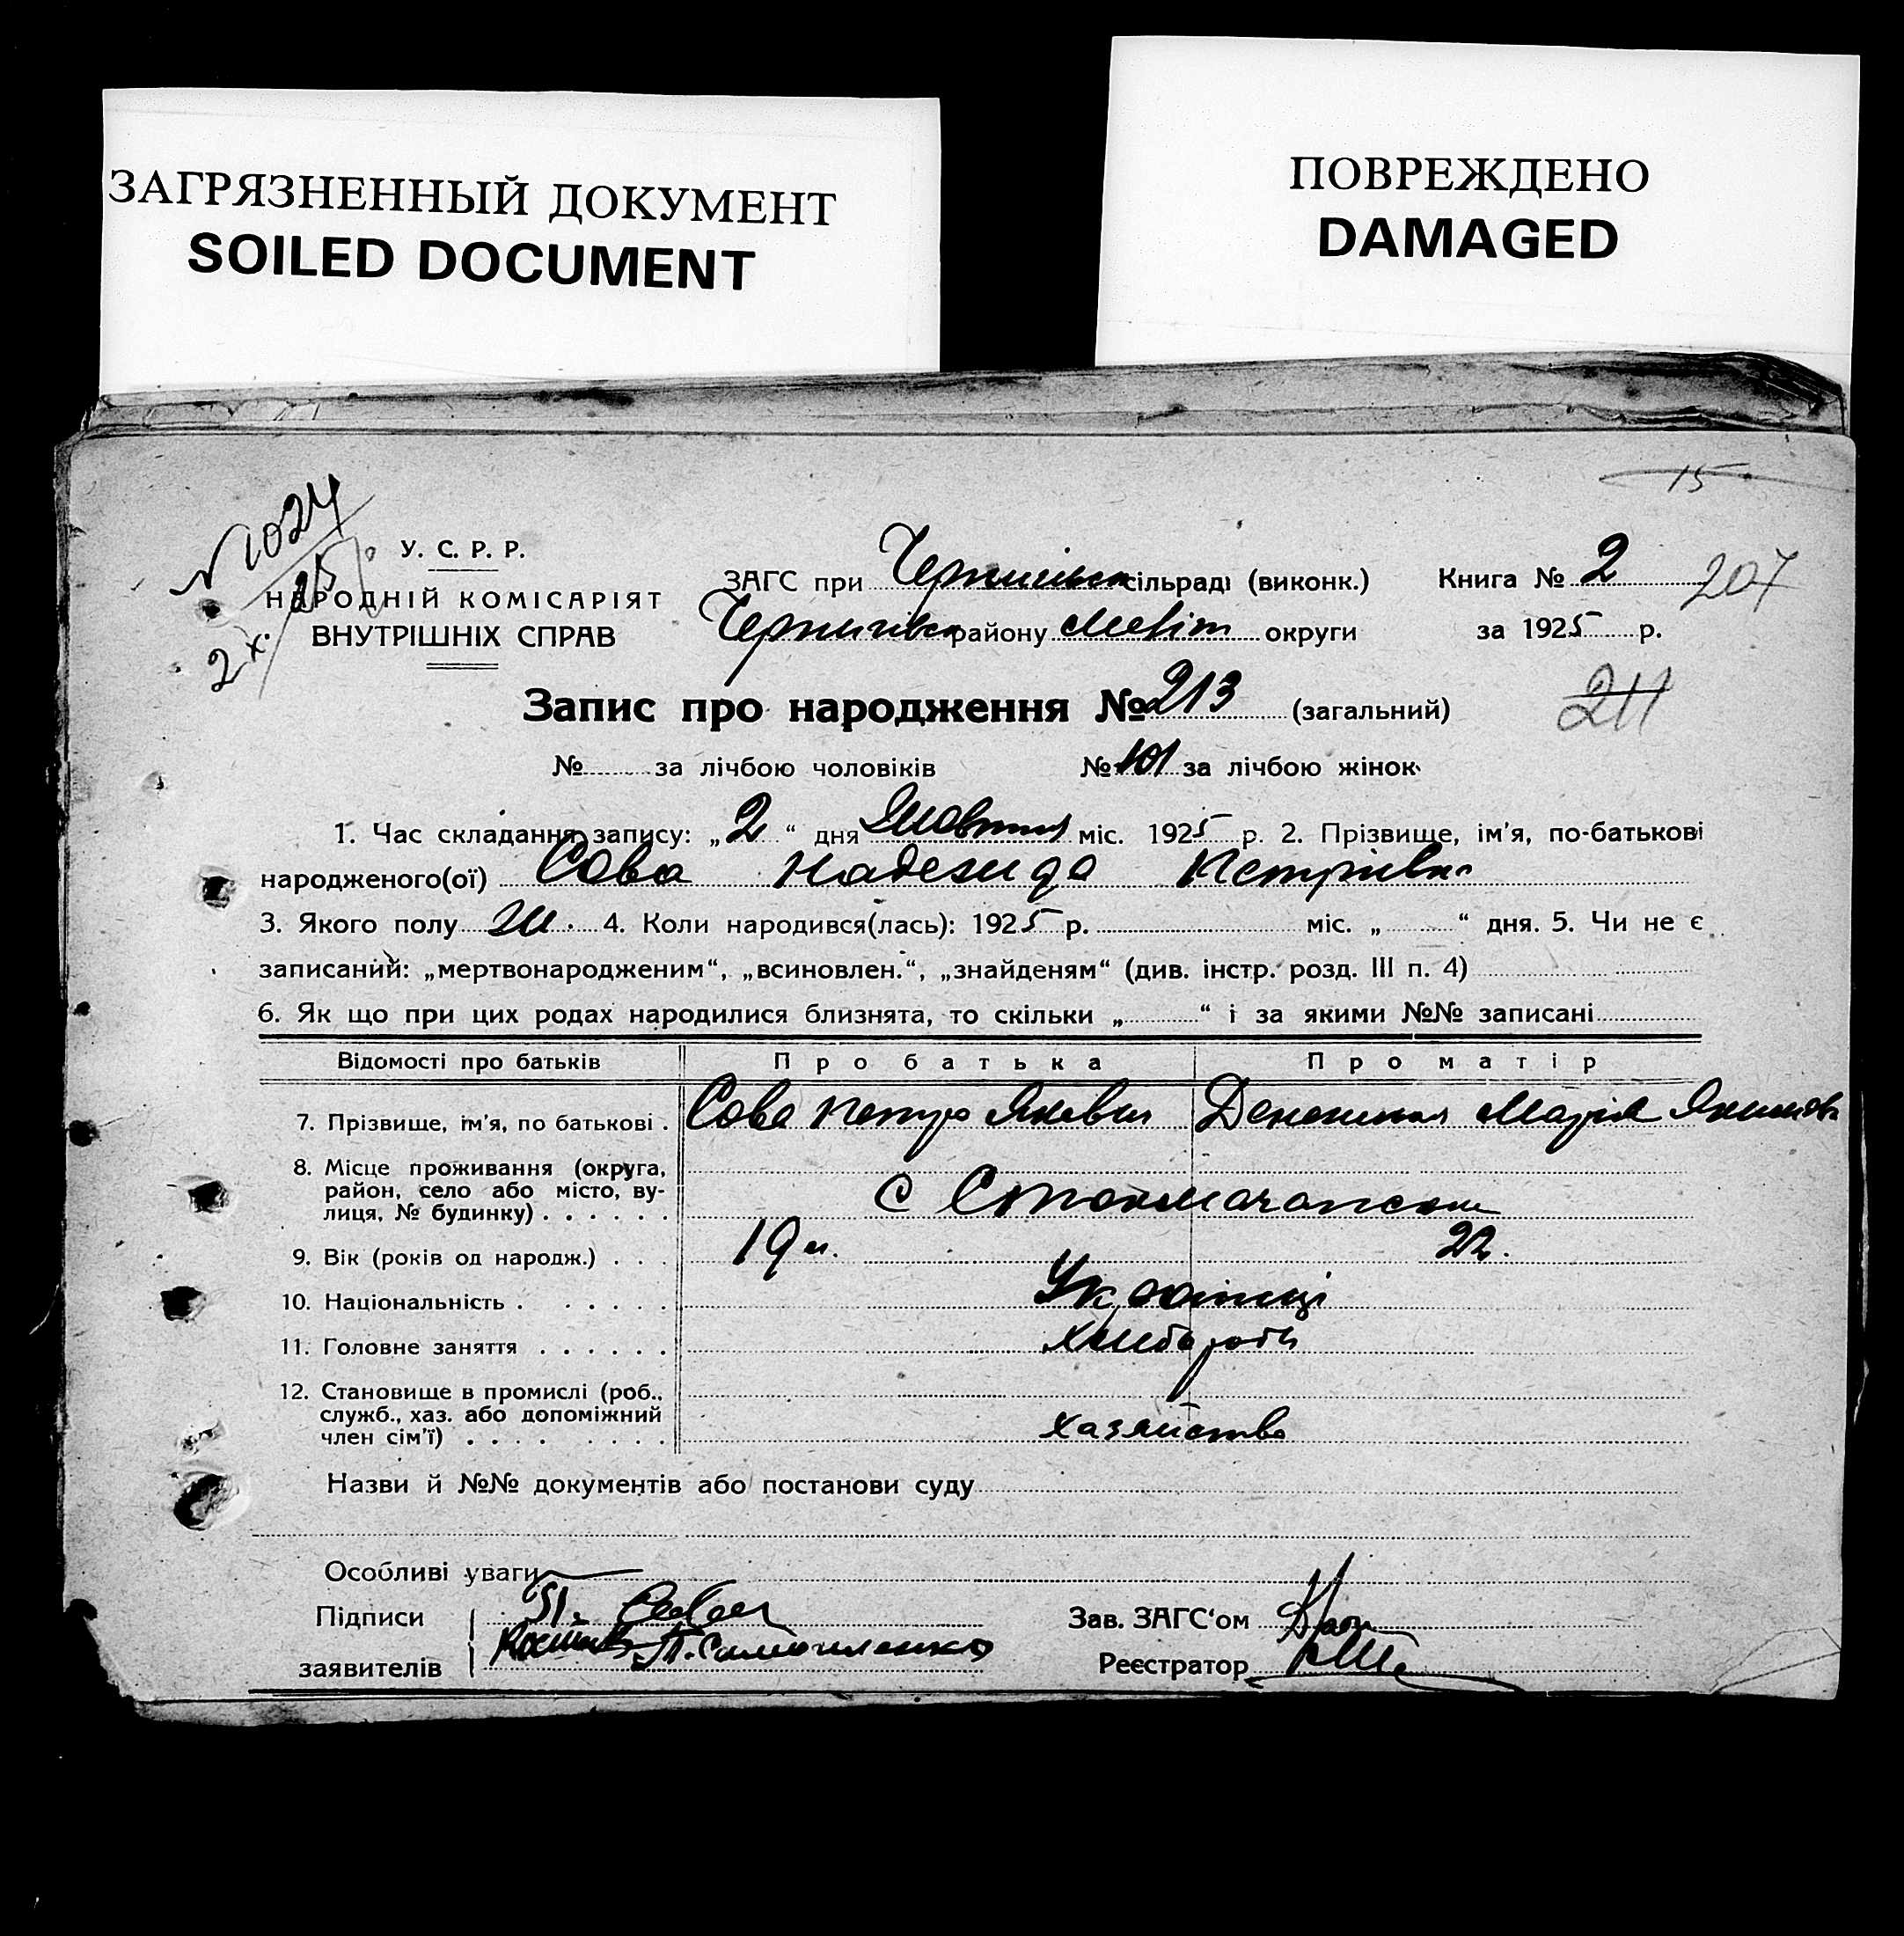 ЗАГРЯЗНЕННЫЙ ДОКУМЕНТ
SOILED DOCUMENT
ПОВРЕЖДЕНО
DAMAGED
15
№ 1024
2 X. 25
У. С. Р. Р.
НАРОДНІЙ КОМІСАРІЯТ
ВНУТРІШНІХ СПРАВ
ЗАГС при сільраді (виконк.) Книга № 2 207
району Меліт округи за 1925 р.
Запис про народження № 213 (загальний) 211
№ за лічбою чоловіків № 101 за лічбою жінок
1. Час складання запису: „2“ дня Жовтня міс. 1925 р. 2. Прізвище, ім'я, по-батькові
народженого(ої) Сова Надежда Петрівна
3. Якого полу ж. 4. Коли народився(лась): 1925 р. міс. „ “ дня. 5. Чи не є
записаний: „мертвонародженим“, „всиновлен.“, „знайденям“ (див. інстр. розд. III п. 4)
6. Як що при цих родах народилися близнята, то скільки „ “ і за якими №№ записані
Відомості про батьків Про батька Про матір
7. Прізвище, ім'я, по батькові . Сова Петро Марія
8. Місце проживання (округа,
район, село або місто, ву-
лиця, № будинку) . . . . . . с
9. Вік (років од народж.) . . . 19 22.
10. Національність . . . . . . Українці
11. Головне заняття . . . . . . хлібороби
12. Становище в промислі (роб.,
служб., хаз. або допоміжний
член сім'ї) . . . . . . . . . хазяйство
Назви й №№ документів або постанови суду
Особливі уваги
Підписи Сова Зав. ЗАГС'ом
заявителів Реєстратор